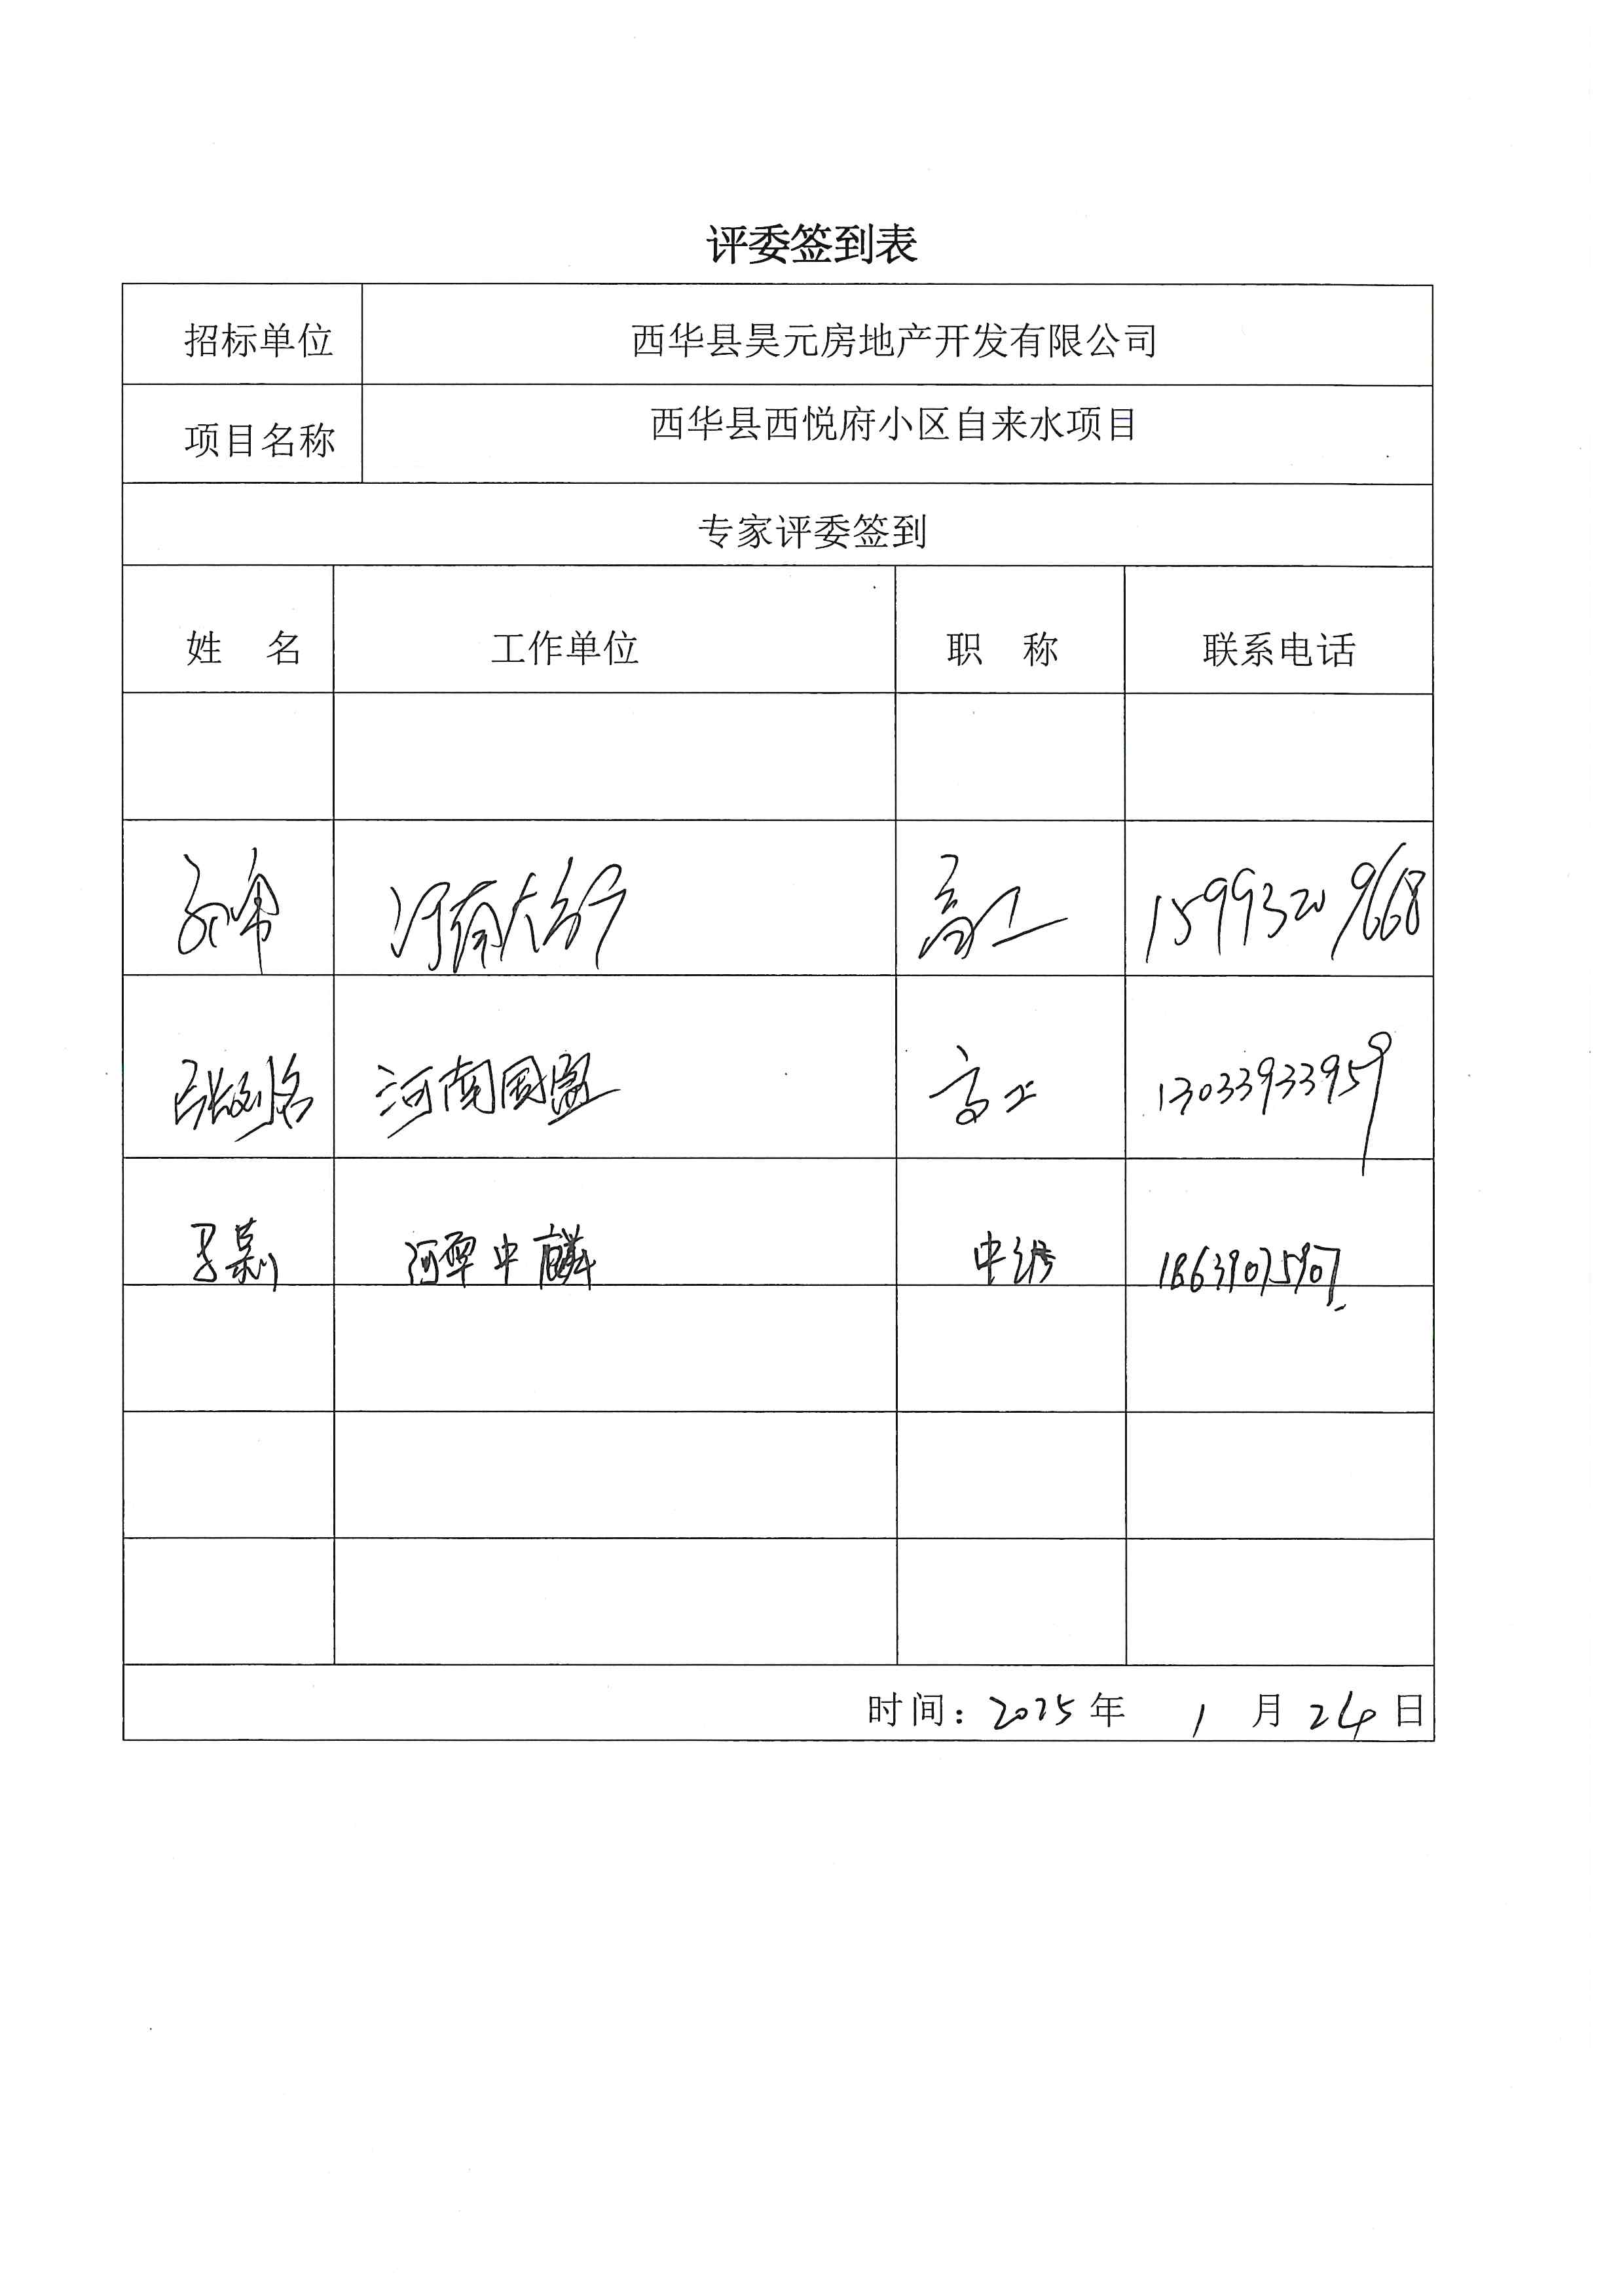 评委签到表
招标单位 西华县昊元房地产开发有限公司
项目名称 西华县西悦府小区自来水项目
专家评委签到
姓 名 工作单位 职 称 联系电话
河南大 高工 15993209668
张 河南国盈 高工 13033933959
河 中麟 中级 18639075907
时间：2025年 1 月 24 日